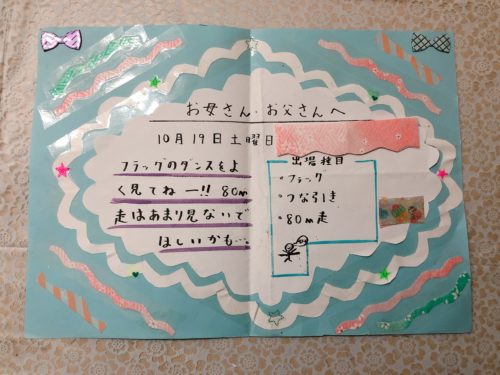 お母さん・お父さんへ
10月19日土曜日
フラッグのダンスをよ
く見てねー!! 80m
走はあまり見ないで
ほしいかも…
出場種目
・フラッグ
・つな引き
・80m走